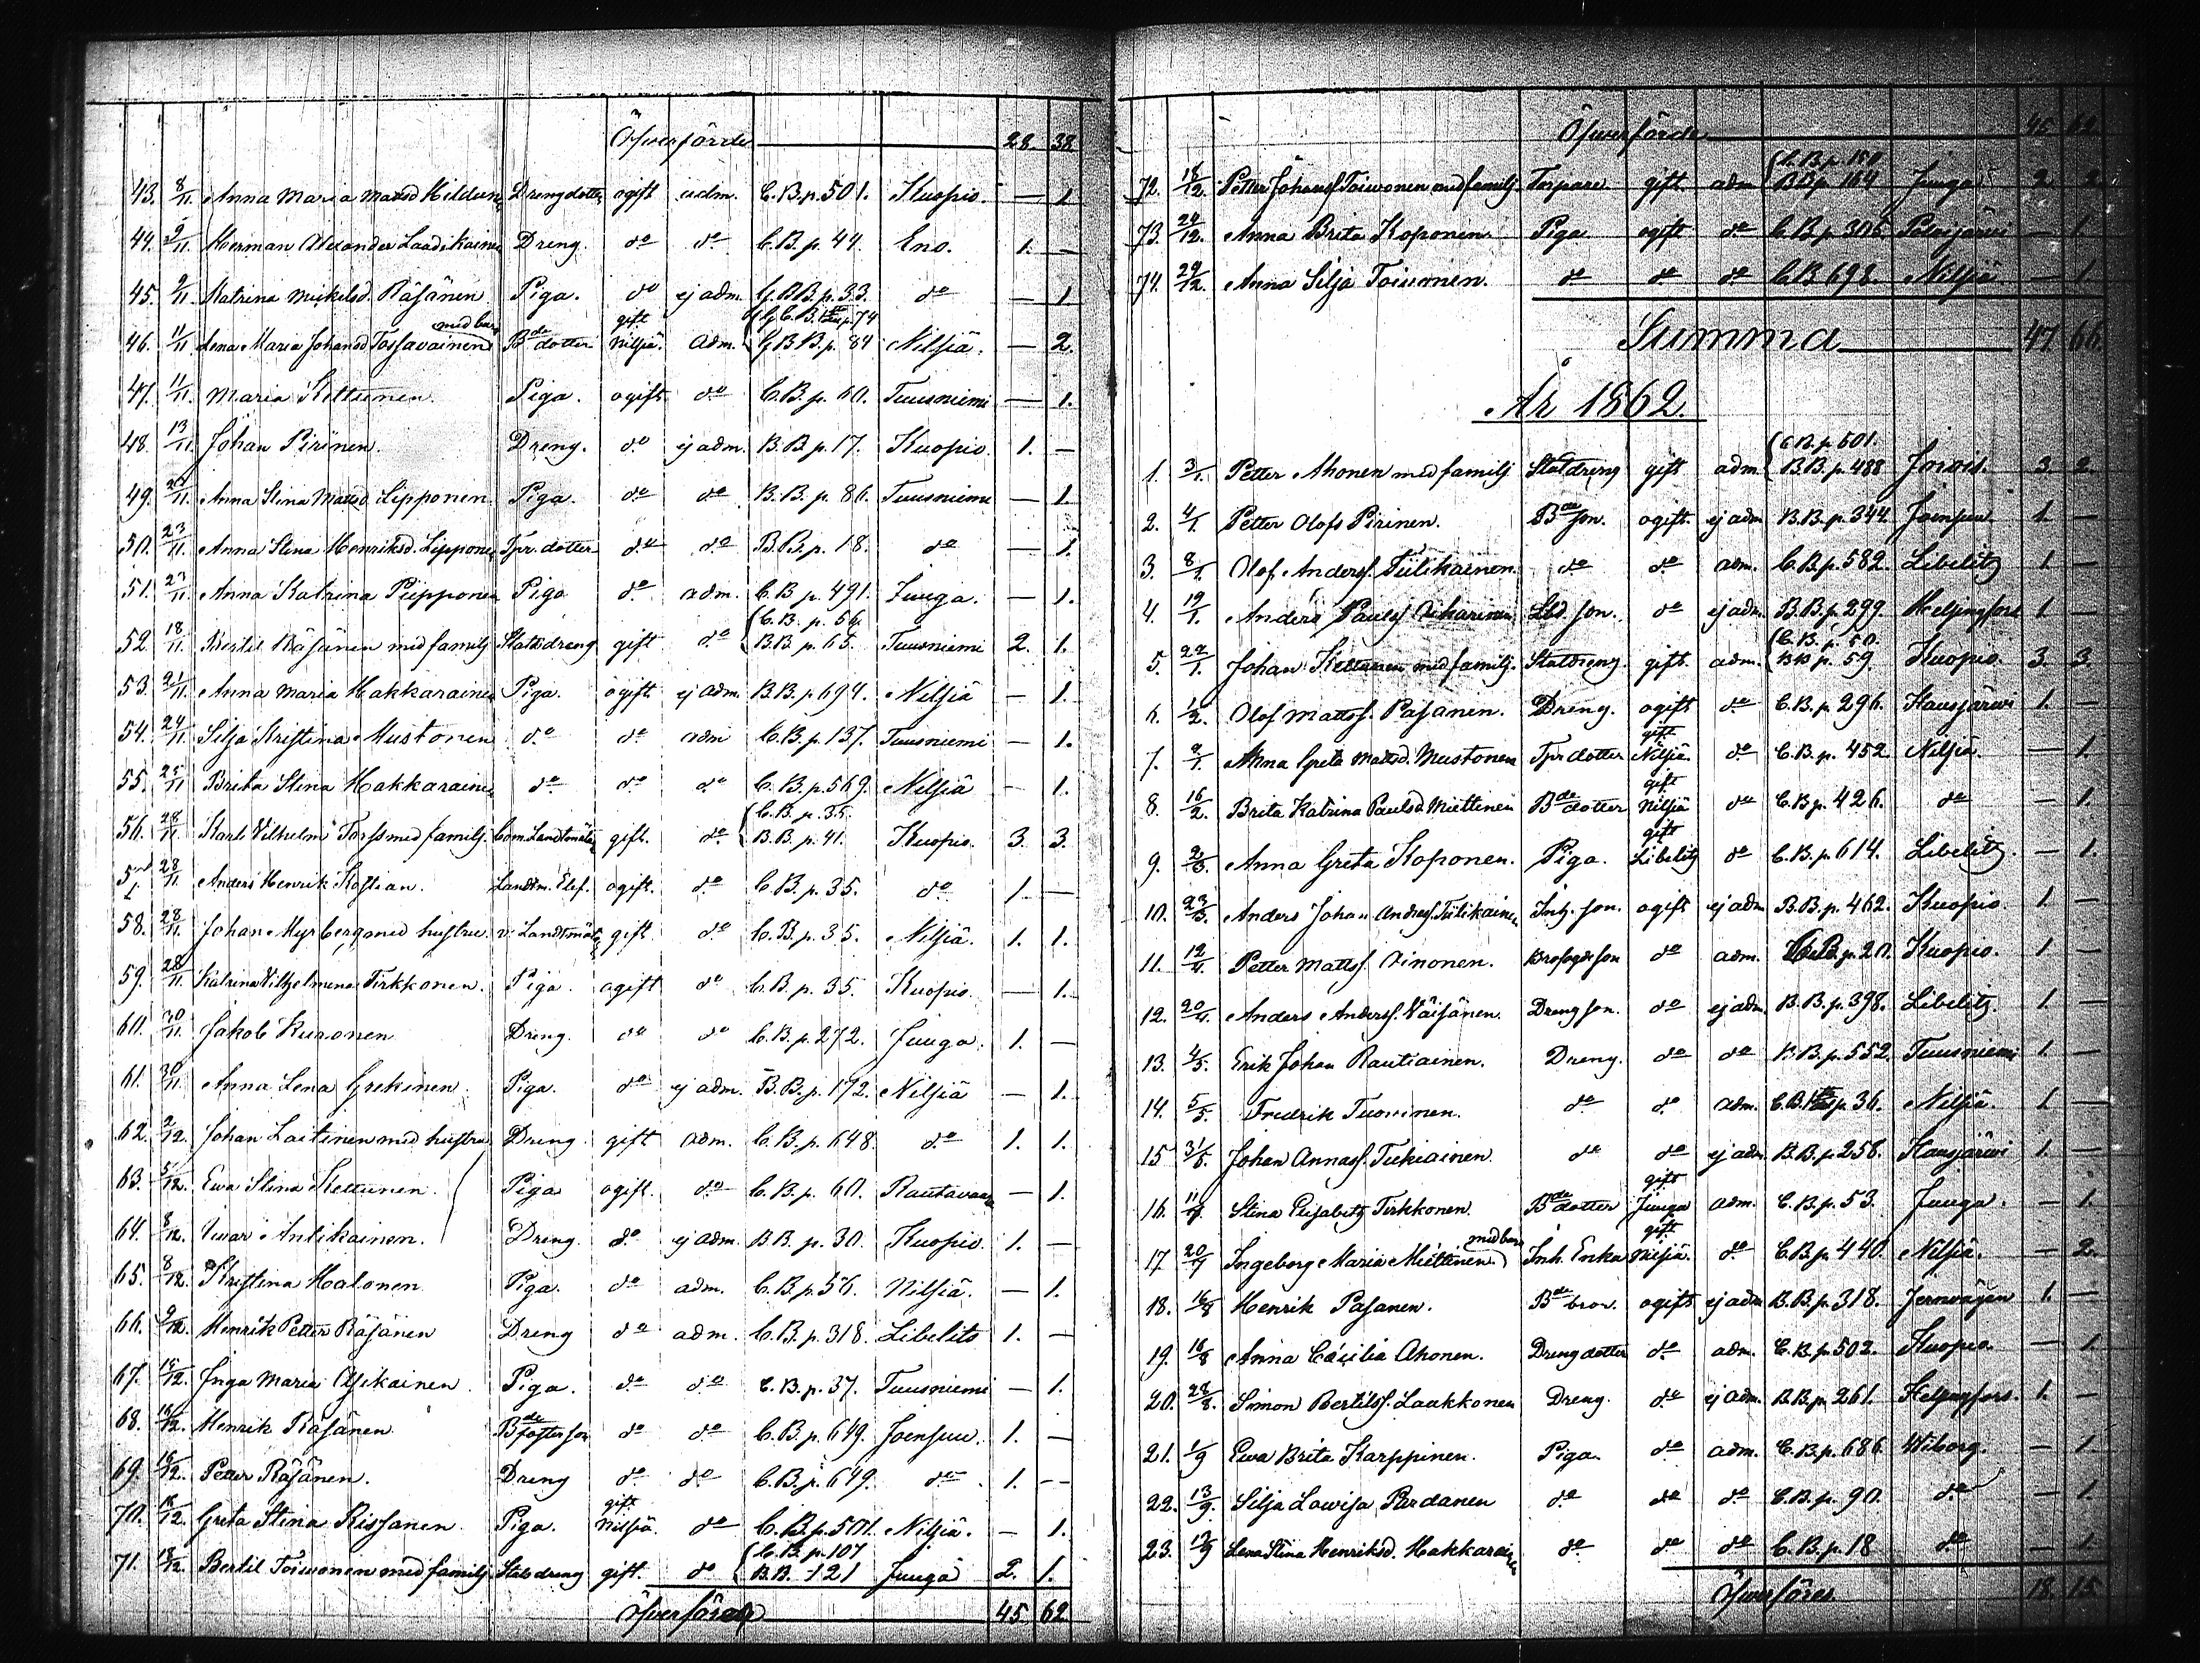 Öfverförde — 28. 38.
43. 8/11. Anna Maria Mattsd Hildunen Drengdotter ogift adm. C.B.p. 501. Kuopio. — 1
44. 9/11. Herman Alexander Laadikainen Dreng. do do C.B.p. 44. Eno. 1. —
45. 9/11. Katrina Mickelsd. Räsänen Piga. do ej adm. B.B.p. 33. do — 1
46. 11/11 Lena Maria Johansd Tossavainen med barn Bde dotter gift Nilsiä. adm. B.B.p. 84 Nilsiä. — 2.
47. 11/11. Maria Kettunen. Piga. ogift do C.B.p. 60. Tuusniemi — 1.
48. 13/11. Johan Pirinen. Dreng. do ej adm. B.B.p. 17. Kuopio. 1. —
49. Anna Stina Mattsd Lipponen. Piga. do do B.B.p. 86. Tuusniemi — 1
50. 23/11. Anna Stina Henriksd. Lipponen Tpr dotter do do B.B.p. 18. do — 1.
51. 27/11 Anna Katrina Piipponen Piga do adm. C.B p. 491. Juuga. — 1.
52. 18/11. Bertil Räsänen med familj Statsdreng gift do C.B. p. 56. B.B p. 65. Tuusniemi 2. 1.
53. 21/11. Anna Maria Hakkarainen Piga. ogift ej adm. B.B.p. 694. Nilsiä — 1.
54. 24/11. Silja Kristina Mustonen do do adm C.B.p. 137. Tuusniemi — 1.
55. 25/11 Brita Stina Hakkarainen do do do C.B.p. 569. Nilsiä — 1.
56. 28/11. Karl Vilhelm Forss med familj. Com. Landtmätare gift. do C.B. p. 35. B.B. p. 41. Kuopio. 3. 3.
57. 28/11. Anders Henrik Kostian. Landtm. Elef. ogift. do C.B. p. 35. do 1. —
58. 28/11. Johan Myrberg med hustru v. Landtmät. gift do C.B. p. 35. Nilsiä. 1. 1.
59. 28/11. Katrina Vilhelmina Tirkkonen. Piga. ogift do C.B. p. 35. Kuopio. — 1.
60. 30/11. Jakob Kuronen Dreng. do do C.B. p. 272. Juuga. 1. —
61. 30/11. Anna Lena Grekinen. Piga. do ej adm. B.B. p. 172. Nilsiä — 1.
62. 2/12. Johan Laitinen med hustru Dreng gift adm. C.B. p. 648. do 1. 1.
63. 5/12. Ewa Stina Kettunen. Piga ogift. do C.B. p. 60. Rautavaara — 1.
64. 8/12. Antikainen. Dreng. do ej adm. B.B. p. 30. Kuopio. 1. —
65. 8/12. Kristina Halonen Piga. do adm. C.B. p. 56. Nilsiä. — 1.
66. 9/12. Henrik Petter Räsänen Dreng do adm. C.B. p. 318. Libelits 1. —
67. Inga Maria Asikainen. Piga. do do C.B. p. 37. Tuusniemi — 1.
68. Henrik Räsänen. Bde fosterson do do C.B. p. 649. Joensuu. 1. —
69. Petter Räsänen. Dreng do do C.B. p. 649. do 1. —
70. Greta Stina Rissanen. Piga. gift Nilsiä. do C.B.p. 501. Nilsiä. — 1.
71. 18/12. Bertil Toivonen med familj Statsdreng gift. do C.B. p. 107 B.B. 121 Juuga 2. 1.
Öfverföres 45 62
Öfverförde 45. 62
72. 18/12. Petter Johanss Toivonen med familj Torpare gift adm C.B.p. 150 B.B.p. 164 Juuga 2. 2.
73. 24/12. Anna Brita Koponen Piga ogift do C.B.p. 306. Pielisjärvi — 1.
74. 29/12. Anna Silja Toivonen. do do do C.B. 698. Nilsiä — 1.
Summa 47 66.
År 1862.
1. 3/1. Petter Ahonen med familj Statdreng gift adm. C.B. p. 501. B.B. p. 488 Jorois. 3. 2.
2. 4/1. Petter Olofs Pirinen. Bde son. ogift. ej adm B.B.p. 344. Joensuu. 1. —
3. 8/1. Olof Anderss. Tiilikainen. do do adm. C.B.p. 582. Libelitz 1. —
4. 19/1. Anders Paulss Lbd. son. do ej adm. B.B.p. 299 Helsingfors 1. —
5. 22/1. Johan Kettunen med familj. Statdreng. gift. adm. C.B. p. 50. B.B. p. 59. Kuopio. 3. 3.
6. 1/2. Olof Mattss. Pasanen. Dreng. ogift do C.B.p. 296. Hausjärvi 1. —
7. Anna Greta Mattsd. Mustonen Tpr dotter gift Nilsiä. do C.B.p. 452 Nilsiä. — 1.
8. 16/2. Brita Katrina Paulsd Miettinen Bde dotter gift Nilsiä do C.B p. 426. do — 1.
9. Anna Greta Koponen. Piga. gift Libelitz do C.B. p. 614. Libelitz. — 1.
10. 23/3. Anders Johan Anderss. Tiilikainen Inh. son. ogift ej adm B.B.p. 462. Kuopio. 1. —
11. 12/4. Petter Mattss. Ainonen. do adm. p. 20. Kuopio. 1. —
12. 20/4. Anders Anderss. Väisänen. Dreng son. do ej adm. B.B.p. 398. Libelitz. 1. —
13. 4/5. Erik Johan Rautiainen. Dreng. do do B.B.p. 552 Tuusniemi 1. —
14. 5/5. Fredrik Tuominen. do do adm. C.B. p. 36. Nilsiä. 1. —
15 Johan Annass. Tukiainen. do do ej adm. B.B.p. 258. Hausjärvi 1. —
16. Stina Elisabetz Tirkkonen. Bde dotter gift Juuga adm. C.B.p. 53. Juuga. — 1.
17 20/7 Ingeborg Maria Miettinen med barn Inh. Enka gift Nilsiä. do C.B.p. 440. Nilsiä. — 2.
18. 16/8 Henrik Pasanen. Bde bror. ogift ej adm B.B.p. 318. Jernvägen 1. —
19. 16/8 Anna Cäcilia Ahonen. Drengdotter do adm. C.B.p. 502. Kuopio. — 1
20. 28/8. Simon Bertilss. Laukkonen Dreng. do ej adm. B.B.p. 261. Helsingfors. 1. —
21. 1/9 Ewa Brita Karppinen. Piga. do adm. C.B.p. 686. Wiborg. — 1
22. 13/9. Silja Lowisa Pardanen do do do C.B.p. 90. do — 1
23. Lena Stina Henriksd. Hakkarainen do do do C.B.p. 18 do — 1.
Öfverföres. 18. 15.